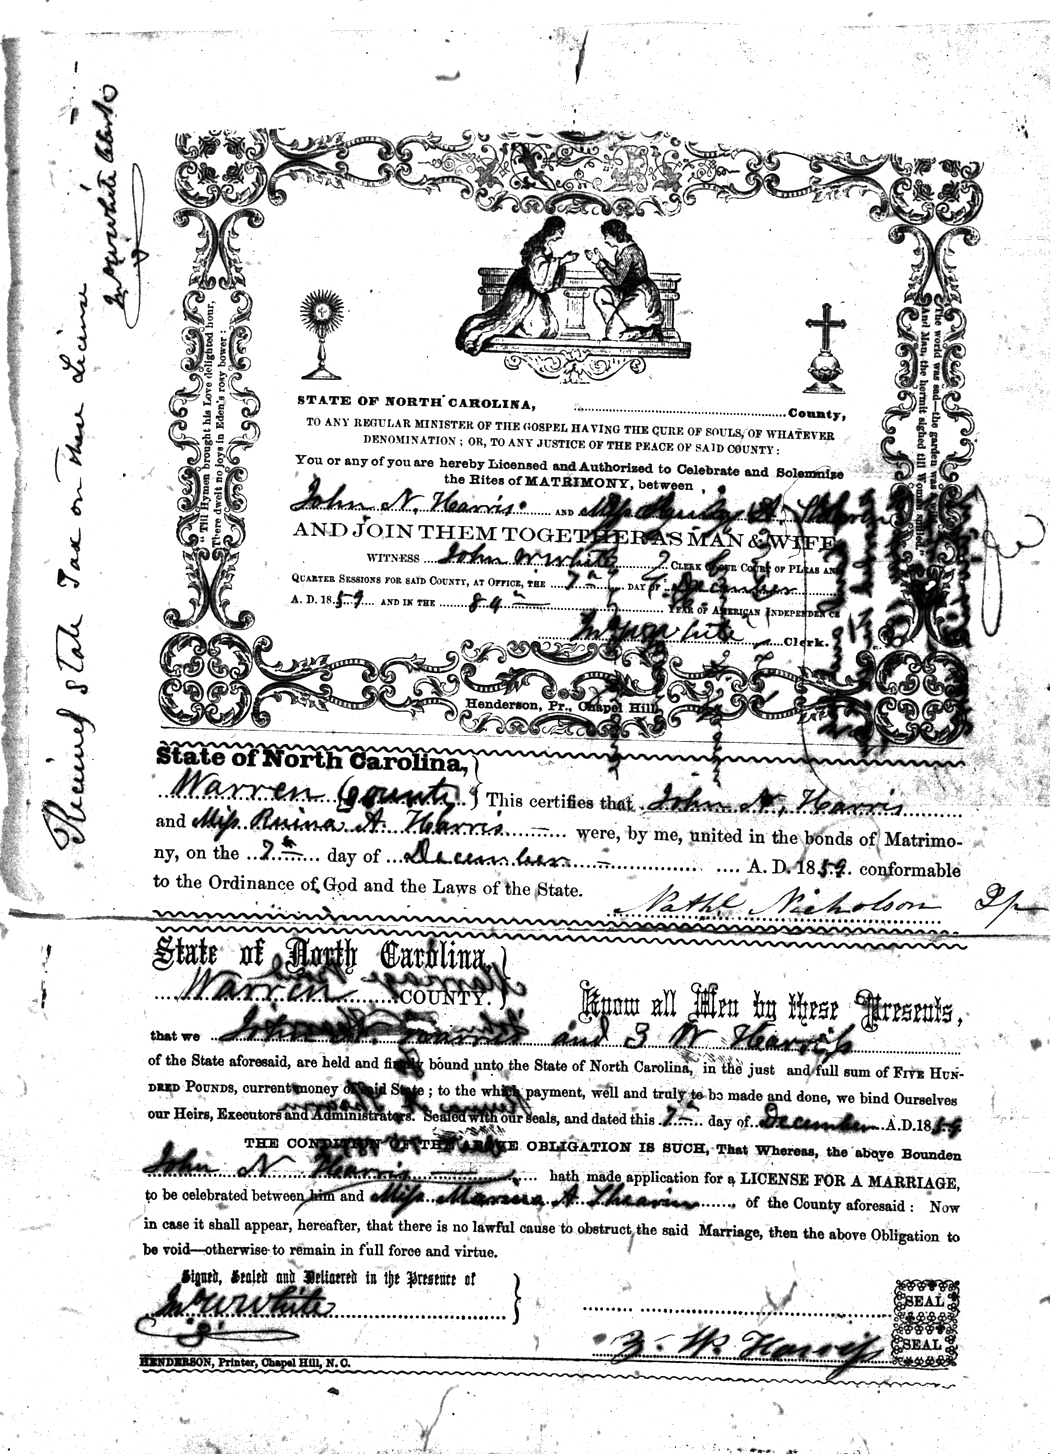 Received State Tax on these License
Jno W White Clerk
"Till Hymen brought his Love delighted hour,
There dwelt no joys in Eden's rosy bower:
The world was sad—the garden was a wild;
And Man, the hermit sighed till Woman smiled."
STATE OF NORTH CAROLINA, County,
TO ANY REGULAR MINISTER OF THE GOSPEL HAVING THE QURE OF SOULS, OF WHATEVER
DENOMINATION; OR, TO ANY JUSTICE OF THE PEACE OF SAID COUNTY:
You or any of you are hereby Licensed and Authorized to Celebrate and Solemnise
the Rites of MATRIMONY, between
John N. Harris AND Miss A.
AND JOIN THEM TOGETHER AS MAN & WIFE
WITNESS John W White CLERK OF OUR COURT OF PLEAS AND
QUARTER SESSIONS FOR SAID COUNTY, AT OFFICE, THE 7th DAY OF December
A. D. 1859 AND IN THE 84th YEAR OF AMERICAN INDEPENDENCE
Jno W White Clerk.
Henderson, Pr., Chapel Hill,
State of North Carolina,
Warren County } This certifies that John N. Harris
and Miss Ruina A. Harris were, by me, united in the bonds of Matrimo-
ny, on the 7th day of December A. D. 1859. conformable
to the Ordinance of God and the Laws of the State.
Nathl Nicholson Jp
State of North Carolina,
Warren COUNTY. } Know all Men by these Presents,
that we John N. Harris and Z W Harriss
of the State aforesaid, are held and firmly bound unto the State of North Carolina, in the just and full sum of FIVE HUN-
DRED POUNDS, current money of said State; to the which payment, well and truly to be made and done, we bind Ourselves
our Heirs, Executors and Administrators. Sealed with our seals, and dated this 7th day of December A.D. 1859
THE CONDITION OF THE ABOVE OBLIGATION IS SUCH, That Whereas, the above Bounden
John N Harris hath made application for a LICENSE FOR A MARRIAGE,
to be celebrated between him and Miss A Shearin of the County aforesaid: Now
in case it shall appear, hereafter, that there is no lawful cause to obstruct the said Marriage, then the above Obligation to
be void—otherwise to remain in full force and virtue.
Signed, Sealed and Delivered in the Presence of
Jno W White
SEAL
Z. W. Harriss SEAL
HENDERSON, Printer, Chapel Hill, N. C.